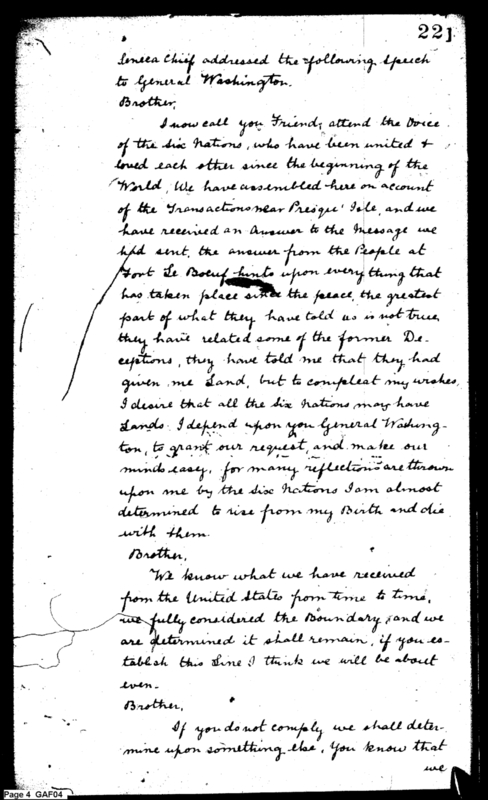 221
Seneca Chief addressed the following Speech
to General Washington.
Brother,
I now call you Friend, attend the Voice
of the Six Nations, who have been united &
loved each other since the beginning of the
World, We have assembled here on account
of the Transactions near Presqu' Isle, and we
have received an Answer to the Message we
had sent, the answer from the People at
Fort Le Boeuf hints upon every thing that
has taken place since the peace, the greatest
part of what they have told us is not true,
they have related some of the former De-
ceptions, they have told me that they had
given me Land, but to compleat my wishes,
I desire that all the Six Nations may have
Lands. I depend upon you General Washing-
ton, to grant our request, and make our
minds easy, for many reflections are thrown
upon me by the Six Nations I am almost
determined to rise from my Birth and die
with them.
Brother,
We know what we have received
from the United States from time to time,
we fully considered the Boundary, and we
are determined it shall remain, if you es-
tablish this Line I think we will be about
even.
Brother,
If you do not comply we shall deter-
mine upon something else, You know that
we
Page 4 GAF04